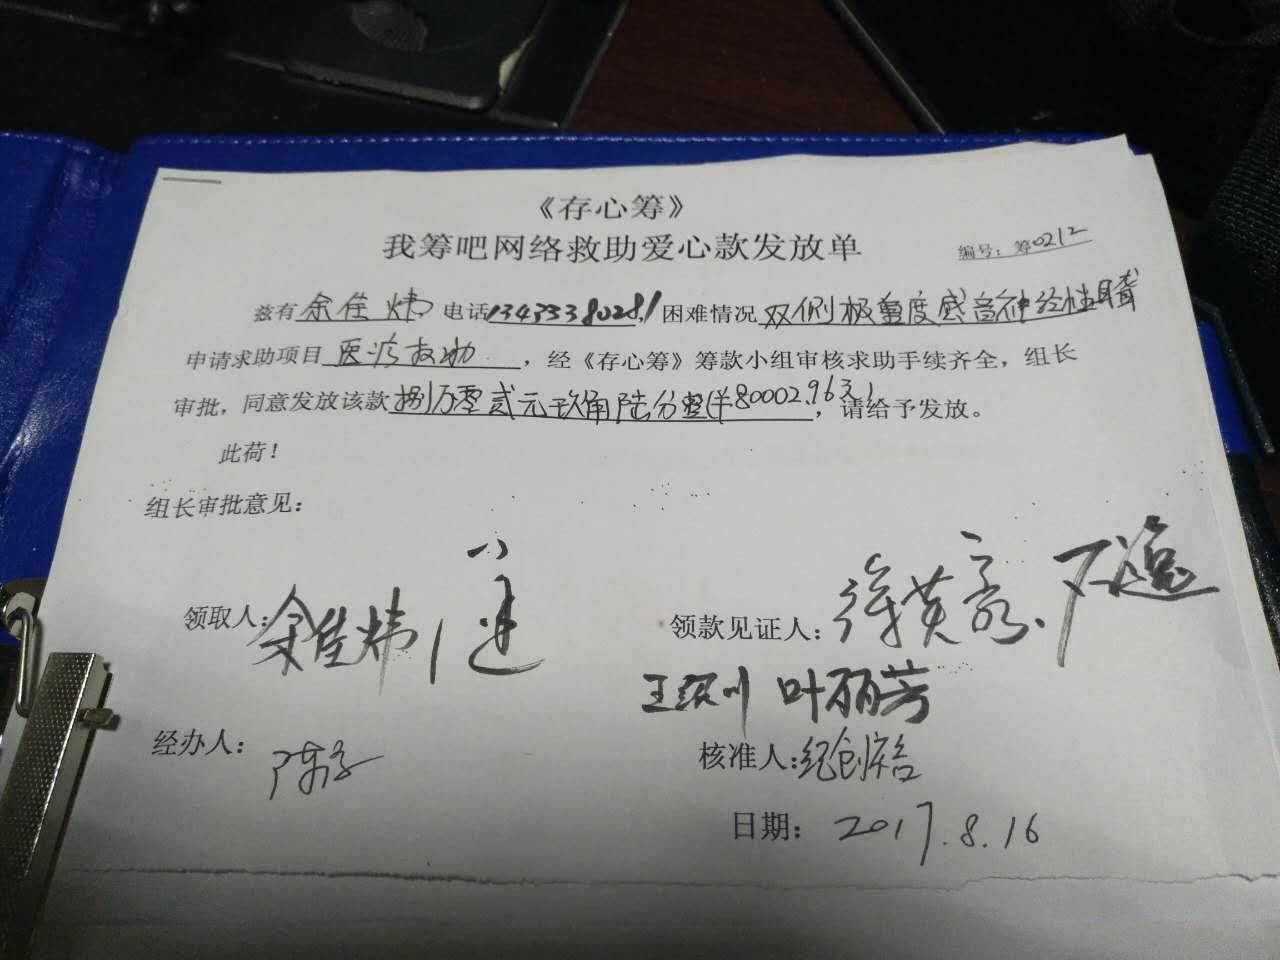 《存心筹》
我筹吧网络救助爱心款发放单
编号：筹0212
兹有余佳炜电话13433380281，困难情况双侧极重度感音神经性聋
申请求助项目医疗救助，经《存心筹》筹款小组审核求助手续齐全，组长
审批，同意发放该款捌万零贰元玖角陆分整(¥80002.96元)，请给予发放。
此荷！
组长审批意见：
领取人：余佳炜
领款见证人：
叶丽芳
经办人：
核准人：纪创裕
日期：2017.8.16